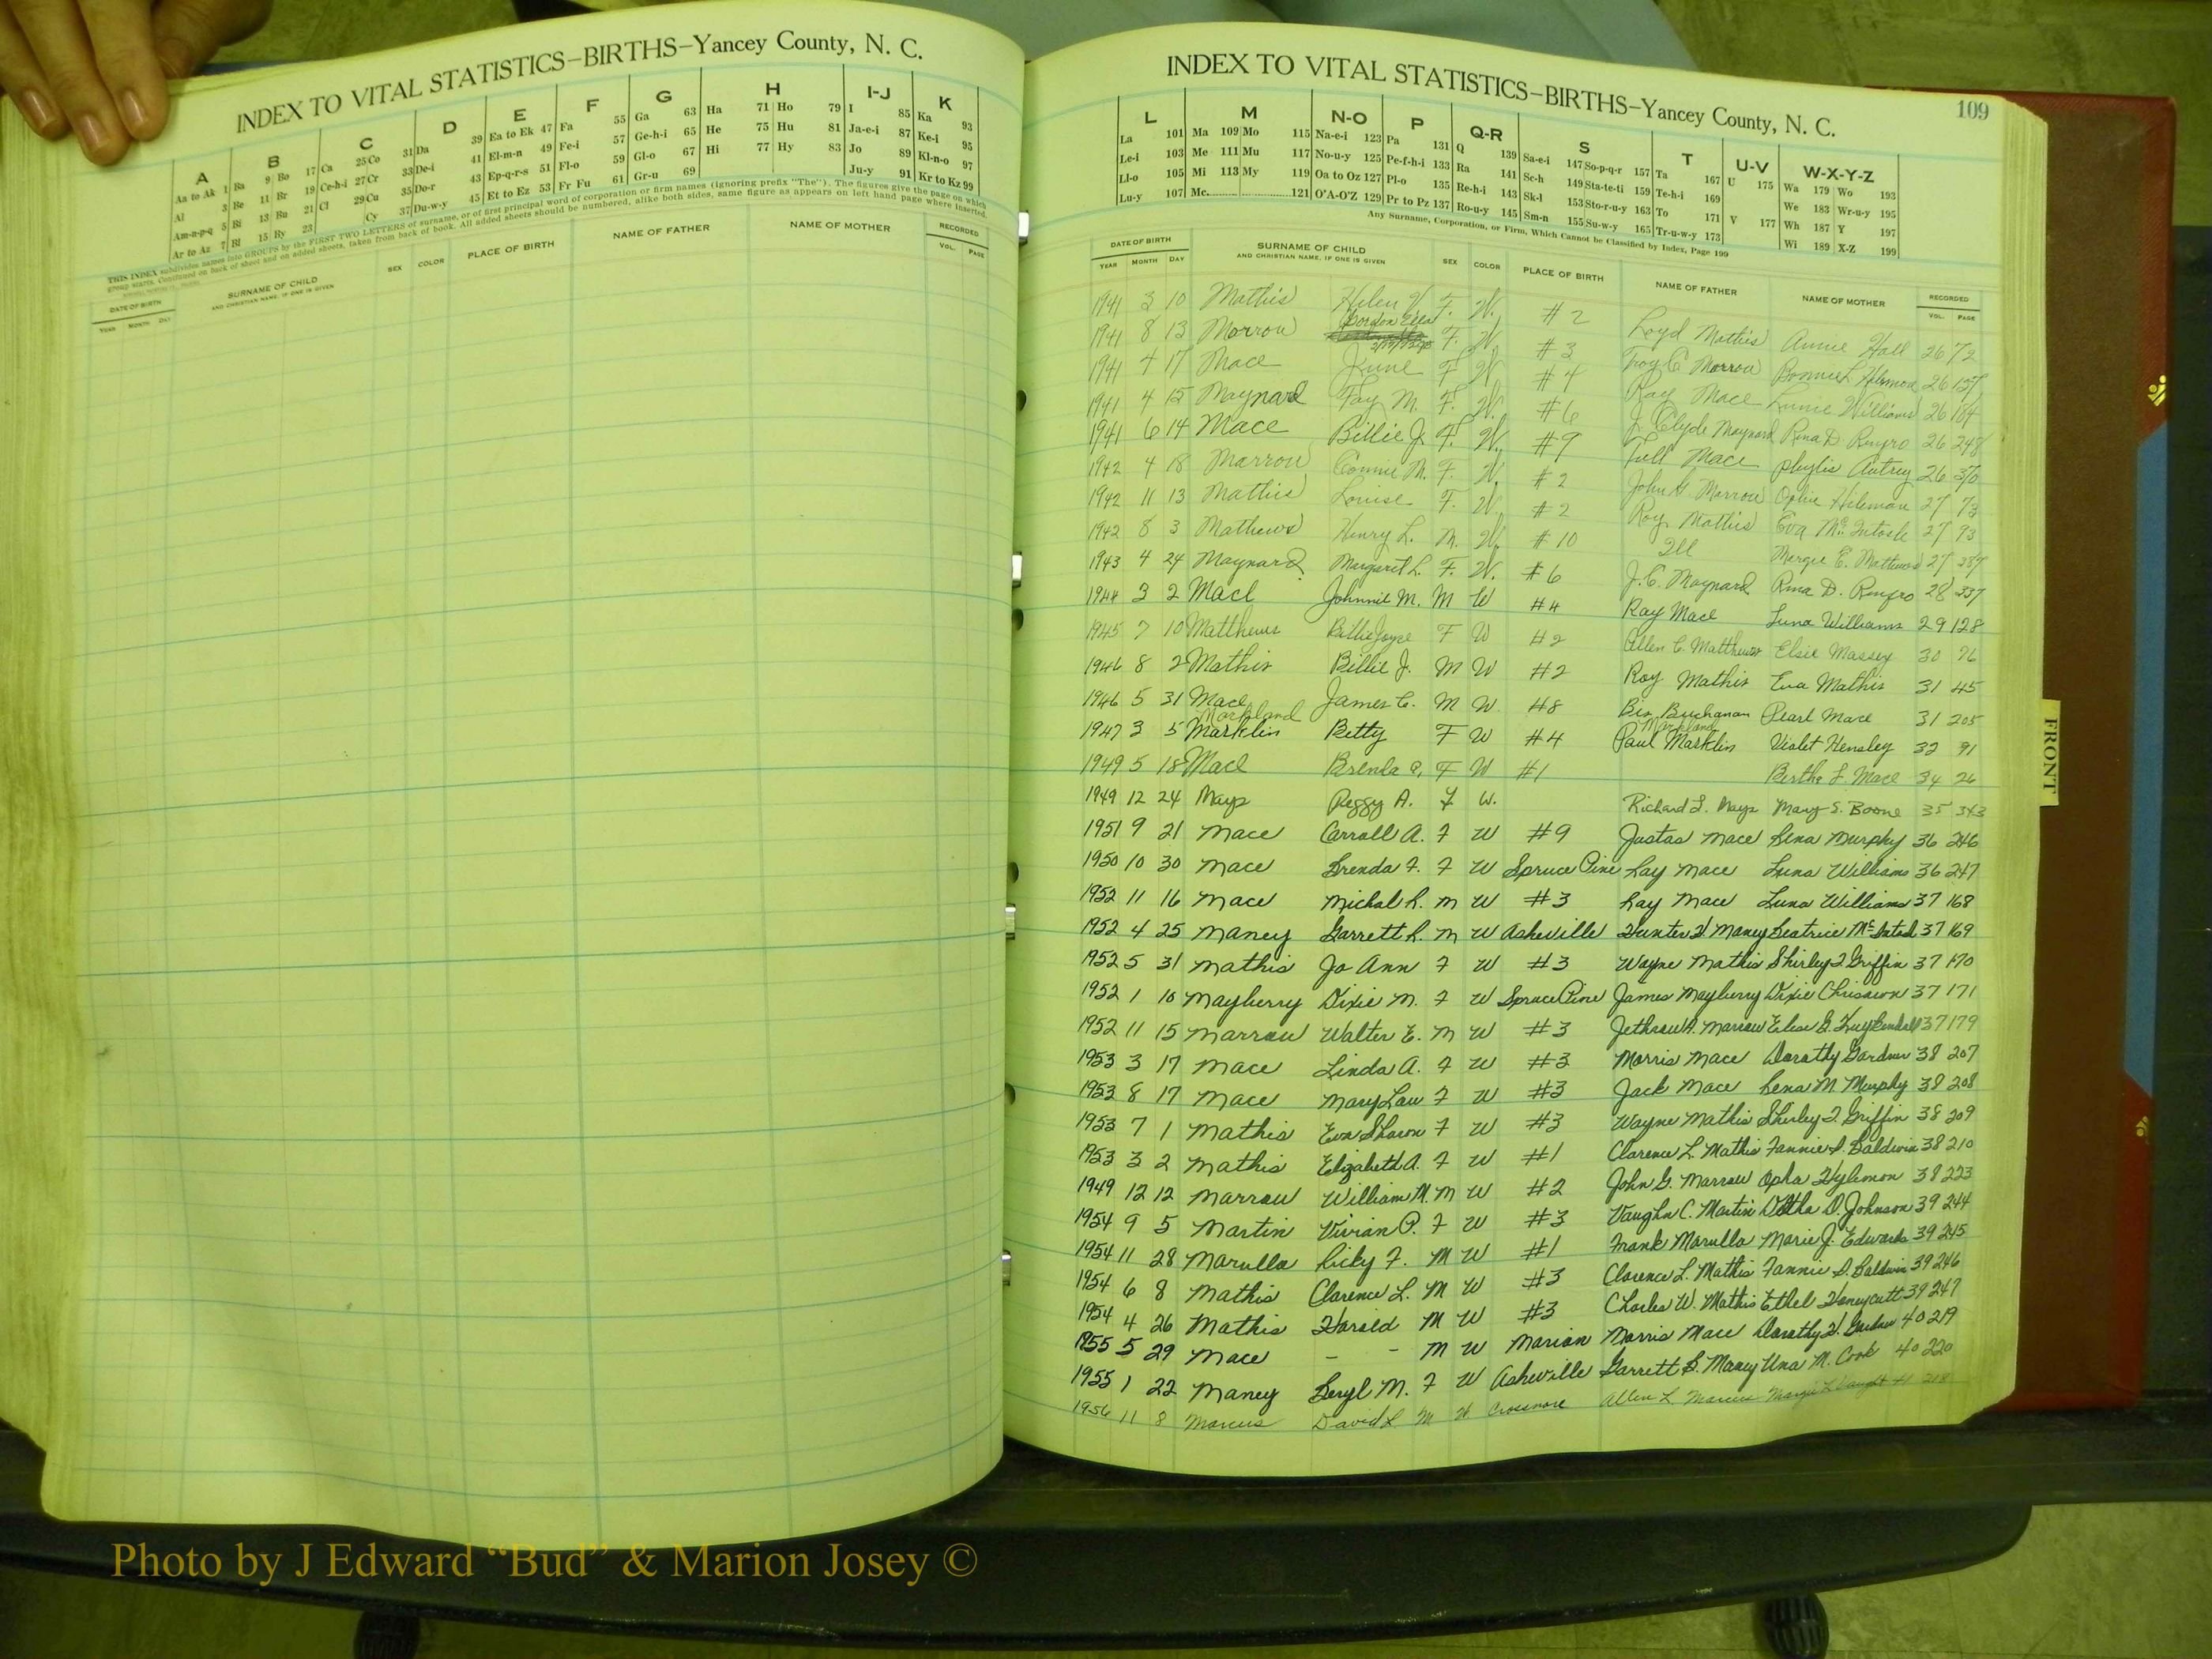 INDEX TO VITAL STATISTICS—BIRTHS—Yancey County, N. C.
A B C D E F G H I-J K
Aa to Ak 1 Ba 9 Bo 17 Ca 25 Co 31 Da 39 Ea to Ek 47 Fa 55 Ga 63 Ha 71 Ho 79 I 85 Ka 93
Al 3 Be 11 Br 19 Ce-h-i 27 Cr 33 De-i 41 El-m-n 49 Fe-i 57 Ge-h-i 65 He 75 Hu 81 Ja-e-i 87 Ke-i 95
Am-n-p-q 5 Bi 13 Bu 21 Cl 29 Cu 35 Do-r 43 Ep-q-r-s 51 Fl-o 59 Gl-o 67 Hi 77 Hy 83 Jo 89 Kl-n-o 97
Ar to Az 7 Bl 15 By 23 Cy 37 Du-w-y 45 Et to Ez 53 Fr Fu 61 Gr-u 69 Ju-y 91 Kr to Kz 99
THIS INDEX subdivides names into GROUPS by the FIRST TWO LETTERS of surname, or of first principal word of corporation or firm names (ignoring prefix "The"). The figures give the page on which
group starts. Continued on back of sheet and on added sheets, taken from back of book. All added sheets should be numbered, alike both sides, same figure as appears on left hand page where inserted.
DATE OF BIRTH SURNAME OF CHILD SEX COLOR PLACE OF BIRTH NAME OF FATHER NAME OF MOTHER RECORDED
YEAR MONTH DAY AND CHRISTIAN NAME, IF ONE IS GIVEN VOL. PAGE
109
INDEX TO VITAL STATISTICS—BIRTHS—Yancey County, N. C.
L M N-O P Q-R S T U-V W-X-Y-Z
La 101 Ma 109 Mo 115 Na-e-i 123 Pa 131 Q 139 Sa-e-i 147 So-p-q-r 157 Ta 167 U 175 Wa 179 Wo 193
Le-i 103 Me 111 Mu 117 No-u-y 125 Pe-f-h-i 133 Ra 141 Sc-h 149 Sta-te-ti 159 Te-h-i 169 We 183 Wr-u-y 195
Ll-o 105 Mi 113 My 119 Oa to Oz 127 Pl-o 135 Re-h-i 143 Sk-l 153 Sto-r-u-y 163 To 171 V 177 Wh 187 Y 197
Lu-y 107 Mc 121 O'A-O'Z 129 Pr to Pz 137 Ro-u-y 145 Sm-n 155 Su-w-y 165 Tr-u-w-y 173 Wi 189 X-Z 199
Any Surname, Corporation, or Firm, Which Cannot be Classified by Index, Page 199
DATE OF BIRTH SURNAME OF CHILD SEX COLOR PLACE OF BIRTH NAME OF FATHER NAME OF MOTHER RECORDED
YEAR MONTH DAY AND CHRISTIAN NAME, IF ONE IS GIVEN VOL. PAGE
1941 3 10 Mathis Helen F. W. #2 Loyd Mathis Annie Hall 26 72
1941 8 13 Morrow Gordon Ella F. W. #3 Troy C Morrow Bonnie L 26 127
1941 4 17 Mace June F W #4 Ray Mace Williams 26 184
1941 4 15 Maynard Fay M. F. W. #6 J. Clyde Maynard Rina D. Renfro 26 248
1941 6 14 Mace Billie J. F. W. #9 Tell Mace Phylis Autrey 26 370
1942 4 18 Marrow Connie M. F. W. #2 John G Marrow Ophie Hileman 27 73
1942 11 13 Mathis Louise F. W. #2 Roy Mathis Eva McIntosh 27 93
1942 8 3 Mathews Henry L. M. W. #10 Ill Margie E. Mathews 27
1943 4 24 Maynard Margaret L. F. W. #6 J.C. Maynard Rina D. Renfro 28 337
1944 3 2 Mace Johnnie M. M W #4 Ray Mace Luna Williams 29 128
1945 7 10 Matthews Billie Joyce F W #2 Allen C. Matthews Elsie Massey 30 76
1946 8 2 Mathis Billie J. M W #2 Roy Mathis Eva Mathis 31 45
1946 5 31 Mace James C. M W #8 Bix Buchanan Pearl Mace 31 205
Markland Markland
1947 3 5 Marklin Betty F W #4 Paul Marklin Violet Hensley 32 91
1949 5 18 Mace Brenda A. F W #1 Bertha F. Mace 34 26
1949 12 24 Mays Peggy A. F W. Richard L. Mays Mary S. Boone 35 343
1951 9 21 Mace Carroll A. F W #9 Justas Mace Lena Murphy 36 246
1950 10 30 Mace Brenda F. F W Spruce Pine Ray Mace Luna Williams 36 247
1952 11 16 Mace Michal R. M W #3 Ray Mace Luna Williams 37 168
1952 4 25 Maney Garrett R. M W Asheville Hunter H Maney Beatrice McIntosh 37 169
1952 5 31 Mathis Jo Ann F W #3 Wayne Mathis Shirley F Griffin 37 170
1952 1 10 Mayberry Dixie M. F W Spruce Pine James Mayberry Dixie Chrisawn 37 171
1952 11 15 Marrow Walter E. M W #3 Jethrow A. Marrow Elese B. Kuykendall 37 179
1953 3 17 Mace Linda A. F W #3 Morris Mace Dorothy Gardner 38 207
1953 8 17 Mace Mary Lou F W #3 Jack Mace Lena M. Murphy 38 208
1953 7 1 Mathis Eva Sharon F W #3 Wayne Mathis Shirley F Griffin 38 209
1953 3 2 Mathis Elizabeth A. F W #1 Clarence L. Mathis Fannie S. Baldwin 38 210
1949 12 12 Marrow William M. M W #2 John G. Marrow Opha Hylemon 38 223
1954 9 5 Martin Vivian P. F W #3 Vaughn C. Martin D. Johnson 39 244
1954 11 28 Marulla Ricky F. M W #1 Frank Marulla Marie J. Edwards 39 245
1954 6 8 Mathis Clarence L. M W #3 Clarence L. Mathis Fannie S. Baldwin 39 246
1954 4 26 Mathis Harold M W #3 Charles W. Mathis Ethel Honeycutt 39 247
1955 5 29 Mace - - M W Marion Morris Mace Dorathy H. Gardner 40 219
1955 1 22 Maney Beryl M. F W Asheville Garrett S. Maney Una M. Cook 40 220
1956 11 8 Marcus David L M W Crossnore Allen L. Marcus Margie L Vaught 41 218
FRONT
Photo by J Edward “Bud” & Marion Josey ©